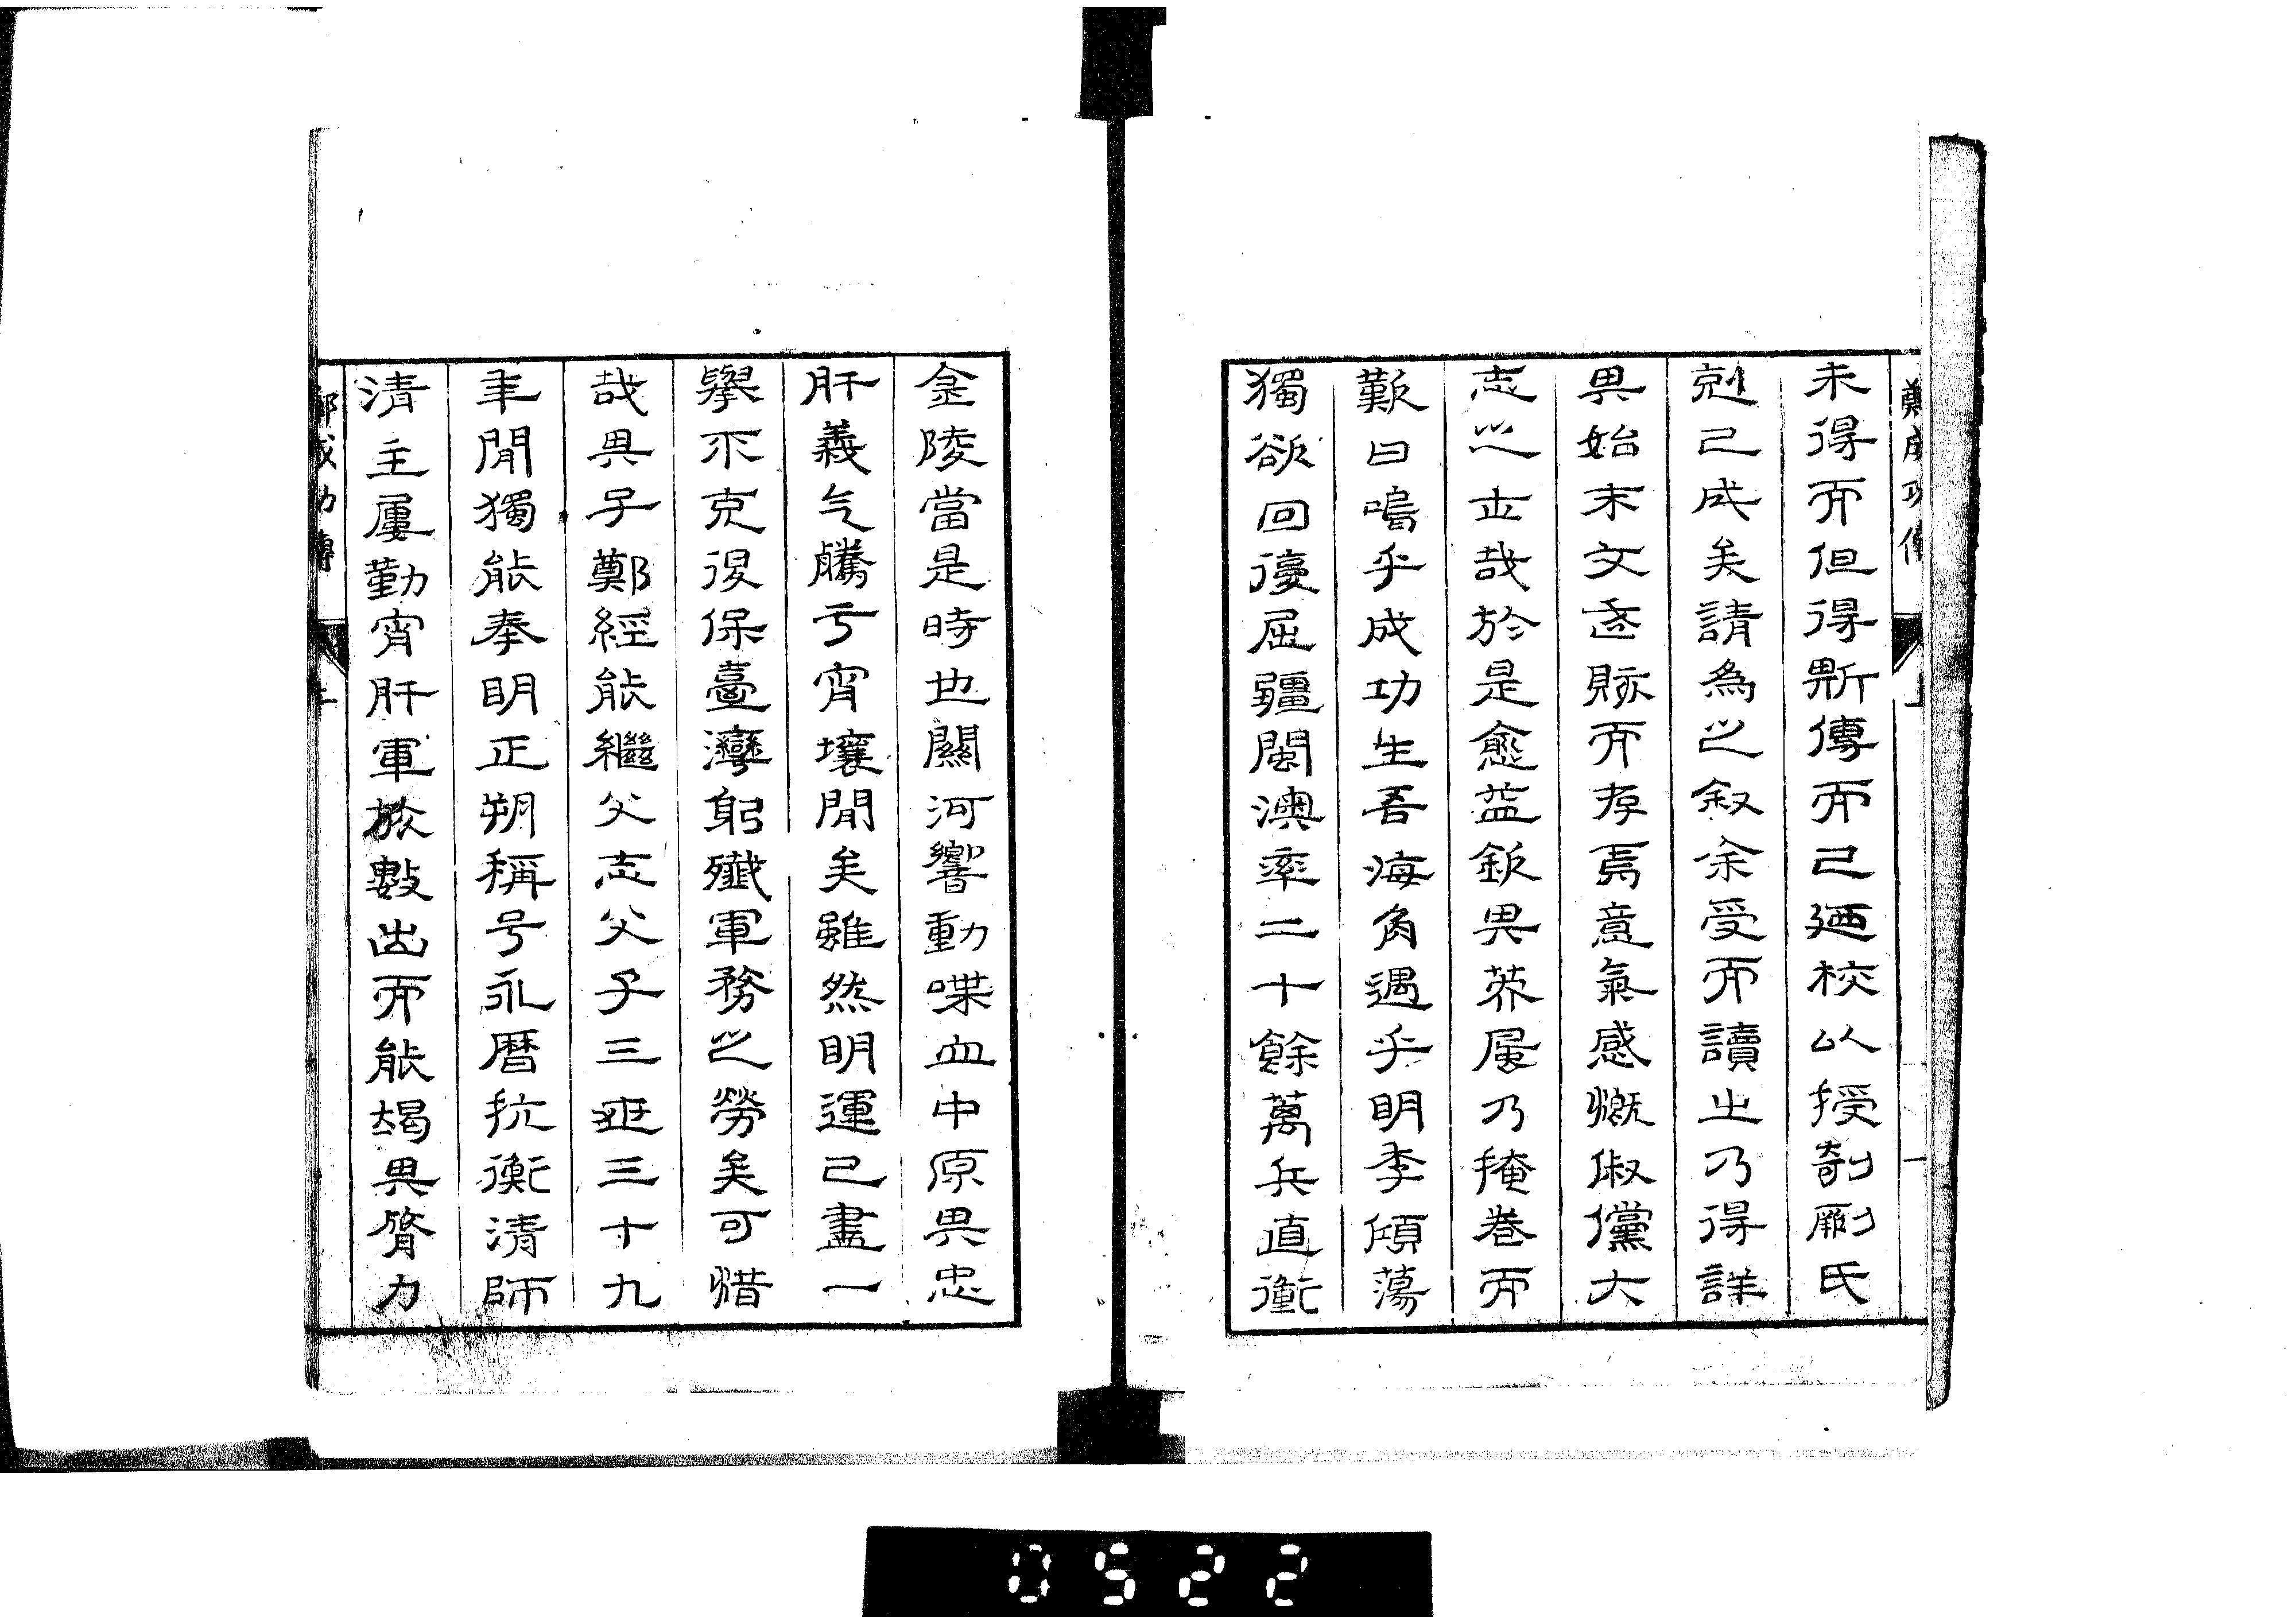 鄭成功傳
未得而但得斯傳而已廼校以授剞劂氏
剋已成矣請為之叙余受而讀之乃得詳
其始末文逶賅而存焉意氣感慨俶儻大
志之士哉於是愈益欽其莽屬乃掩巻而
歎曰嗚乎成功生吾海角遇乎明季傾蕩
獨欲回復屈疆閩澳率二十餘萬兵直衝
金陵當是時也關河響動喋血中原其忠
肝義气騰于宵壤間矣雖然明運已盡一
擧不克復保臺灣躬殲軍務之勞矣可惜
哉其子鄭經能繼父志父子三迋三十九
年間獨能奉明正朔稱号永暦抗衡清師
清主屢勤宵旰軍旅數出而能竭其膂力
鄭成功傳